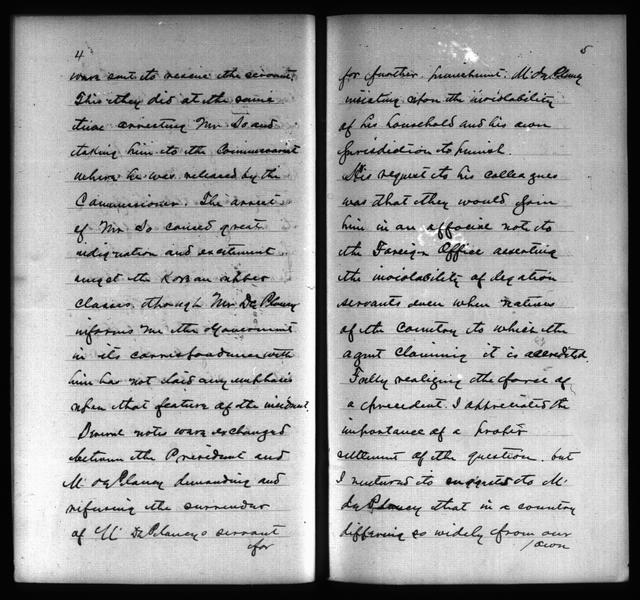 4
were sent to rescue the servant.
This they did at the same
time arresting Mr So and
taking him to the Commissariat
where he was released by the
Commissioner. The arrest
of Mr So caused great
indignation and excitement
amgst the Korean upper
classes though Mr De Plancy
informs me the Government
in its correspondence with
him has not laid any emphasis
upon that feature of the incident.
Several notes were exchanged
between the President and
M. de Plancy demanding and
refusing the surrender
of M. De Plancys servant
for
5
for further punishment. M. de Plancy
insisting upon the inviolability
of his household and his own
jurisdiction to punish.
His request to his colleagues
was that they would join
him in an note to
the Foreign Office asserting
the inviolability of legation
servants even when natives
of the country to which the
agent claiming it is accredited.
Fully realizing the force of
a precedent I appreciated the
importance of a proper
settlement of the question but
I ventured to suggest to M.
de Plancy that in a country
differing so widely from our
own